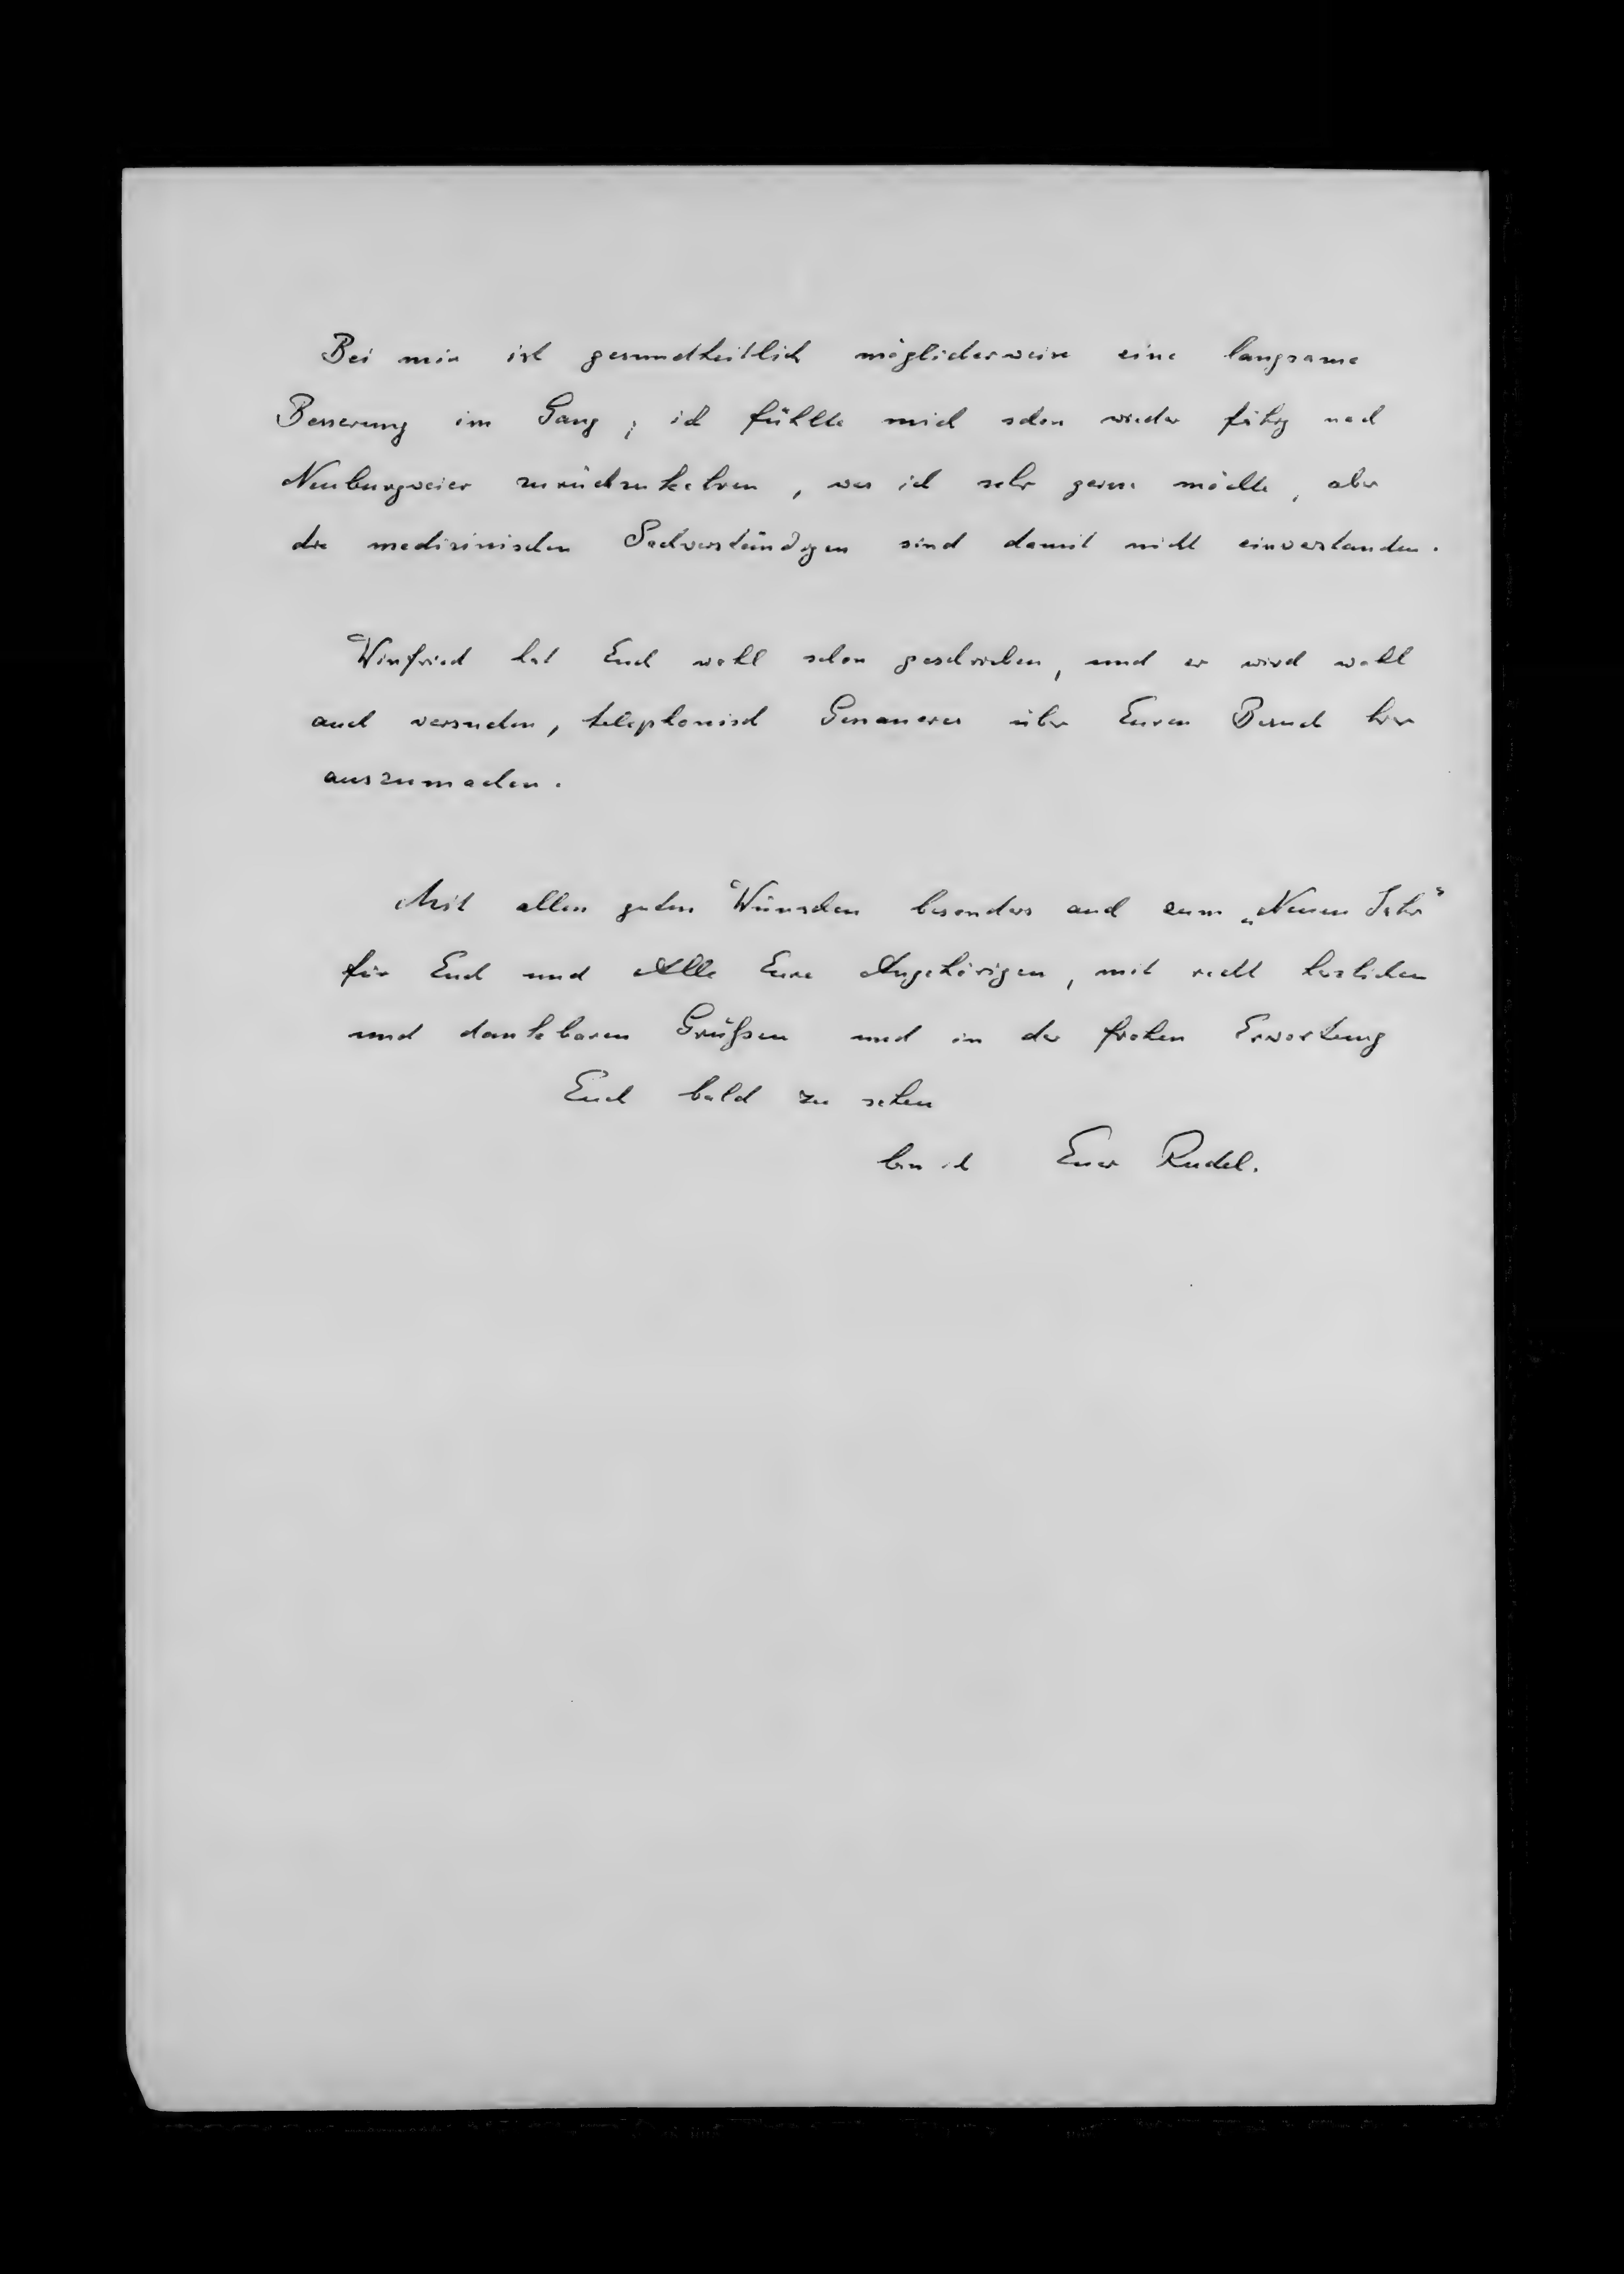 Bei mir ist gesundheitlich möglicherweise eine langsame
Besserung im Gang; ich fühlte mich schon wieder fähig nach
Neuburgweier zurückzukehren, was ich sehr gerne möchte, aber
die medizinischen Sachverständigen sind damit nicht einverstanden.
Winfried hat Euch wohl schon geschrieben, und er wird wohl
auch versuchen, telephonisch Genaueres über Euren Besuch hier
auszumachen.
Mit allen guten Wünschen besonders auch zum „Neuen Jahr“
für Euch und Alle Eure Angehörigen, mit recht herzlichen
und dankbaren Grüßen und in der frohen Erwartung
Euch bald zu sehen
bin ich Euer Rudel.